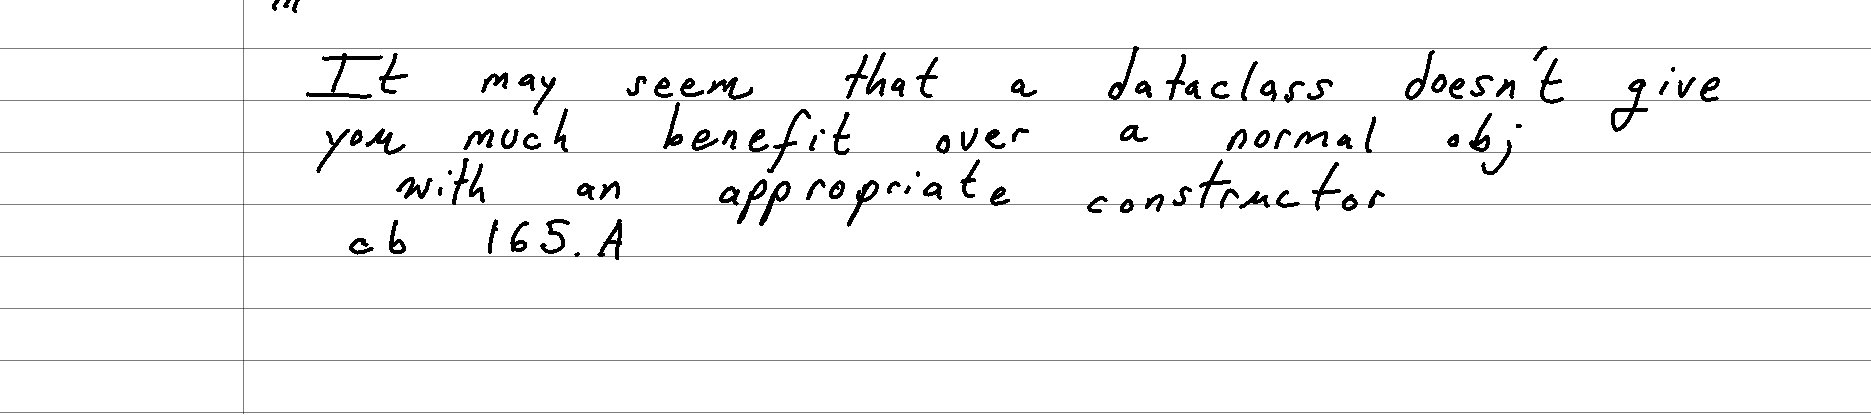 It may seem that a dataclass doesn't give
you much benefit over a normal obj
with an appropriate constructor
cb 165.A